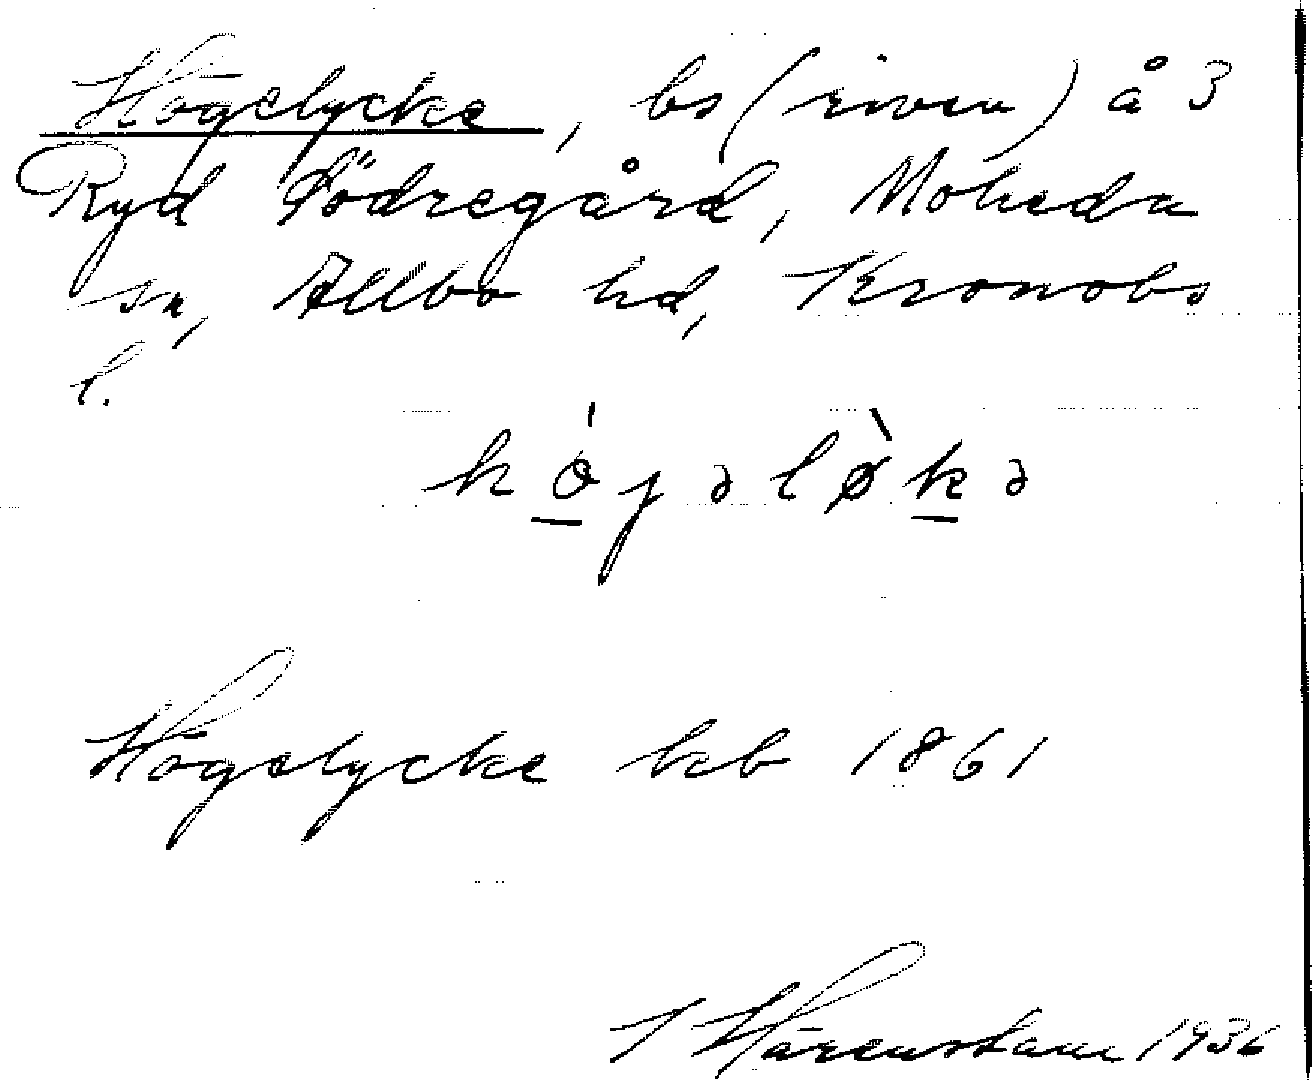 Högelycke, bs (riven) å 3
Ryd Södregård, Moheda
sn, Allbo hd, Kronobs
l.
hójəløkə
Högelycke kb 1861
J Härenstam 1936